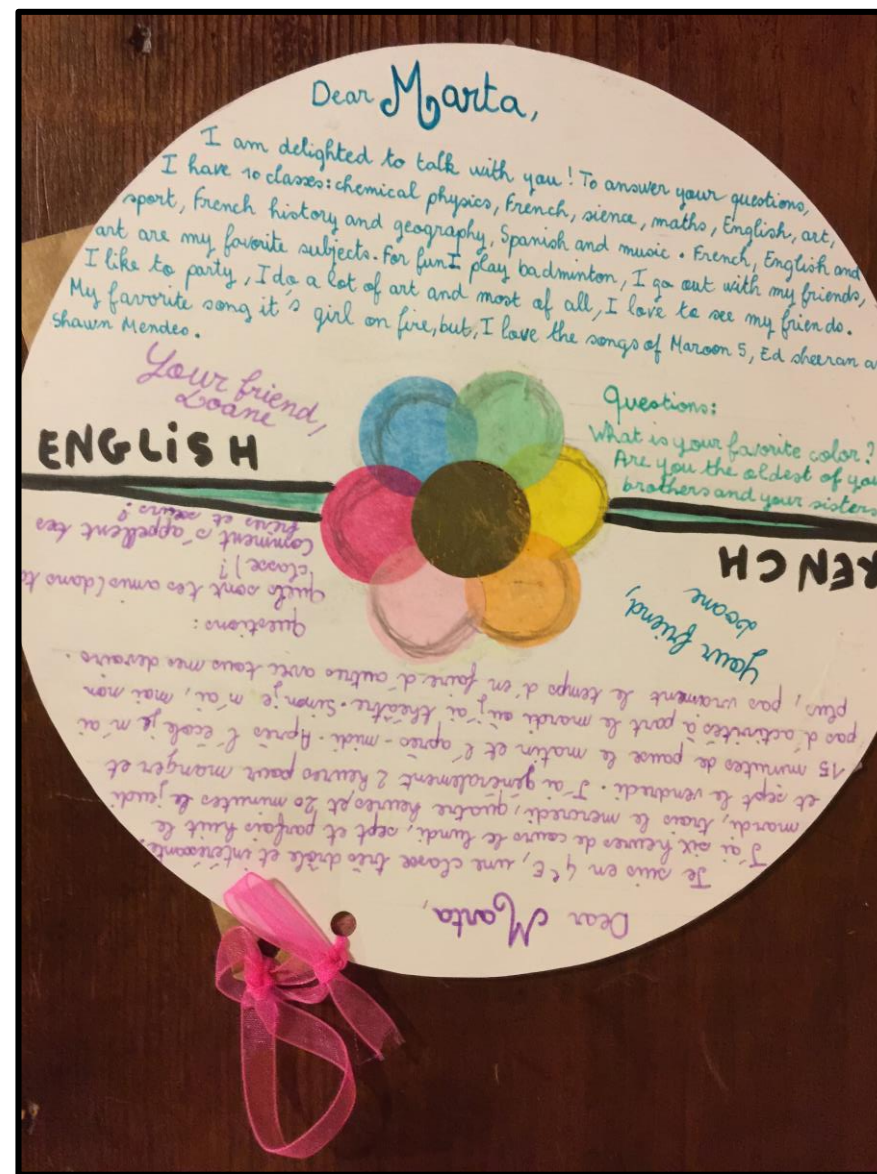 Dear Marta,
I am delighted to talk with you! To answer your questions,
I have 10 classes: chemical physics, French, sience, maths, English, art,
sport, French history and geography, Spanish and music. French, English and
art are my favorite subjects. For fun I play badminton, I go out with my friends,
I like to party, I do a lot of art and most of all, I love to see my friends.
My favorite song it's girl on fire, but, I love the songs of Maroon 5, Ed sheeran a
Shawn Mendes.
Your friend,
Loane
ENGLISH
Questions:
What is your favorite color?
Are you the oldest of you
brothers and your sisters
RENCH
Dear Marta,
Je suis en 4°E, une classe très drôle et intéressante.
J'ai six heures de cours le lundi, sept et parfois huit le
mardi, trois le mercredi, quatre heures et 20 minutes le jeudi
et sept le vendredi. J'ai généralement 2 heures pour manger et
15 minutes de pause le matin et l'après-midi. Après l'école je n'ai
pas d'activités à part le mardi où j'ai théâtre. Sinon je n'ai, mai non
plus, pas vraiment le temps d'en faire d'autres avec tous mes devoirs.
Your friend,
Loane
questions:
quels sont tes amis (dans ta
classe)?
Comment s'appellent tes
frères et sœurs?